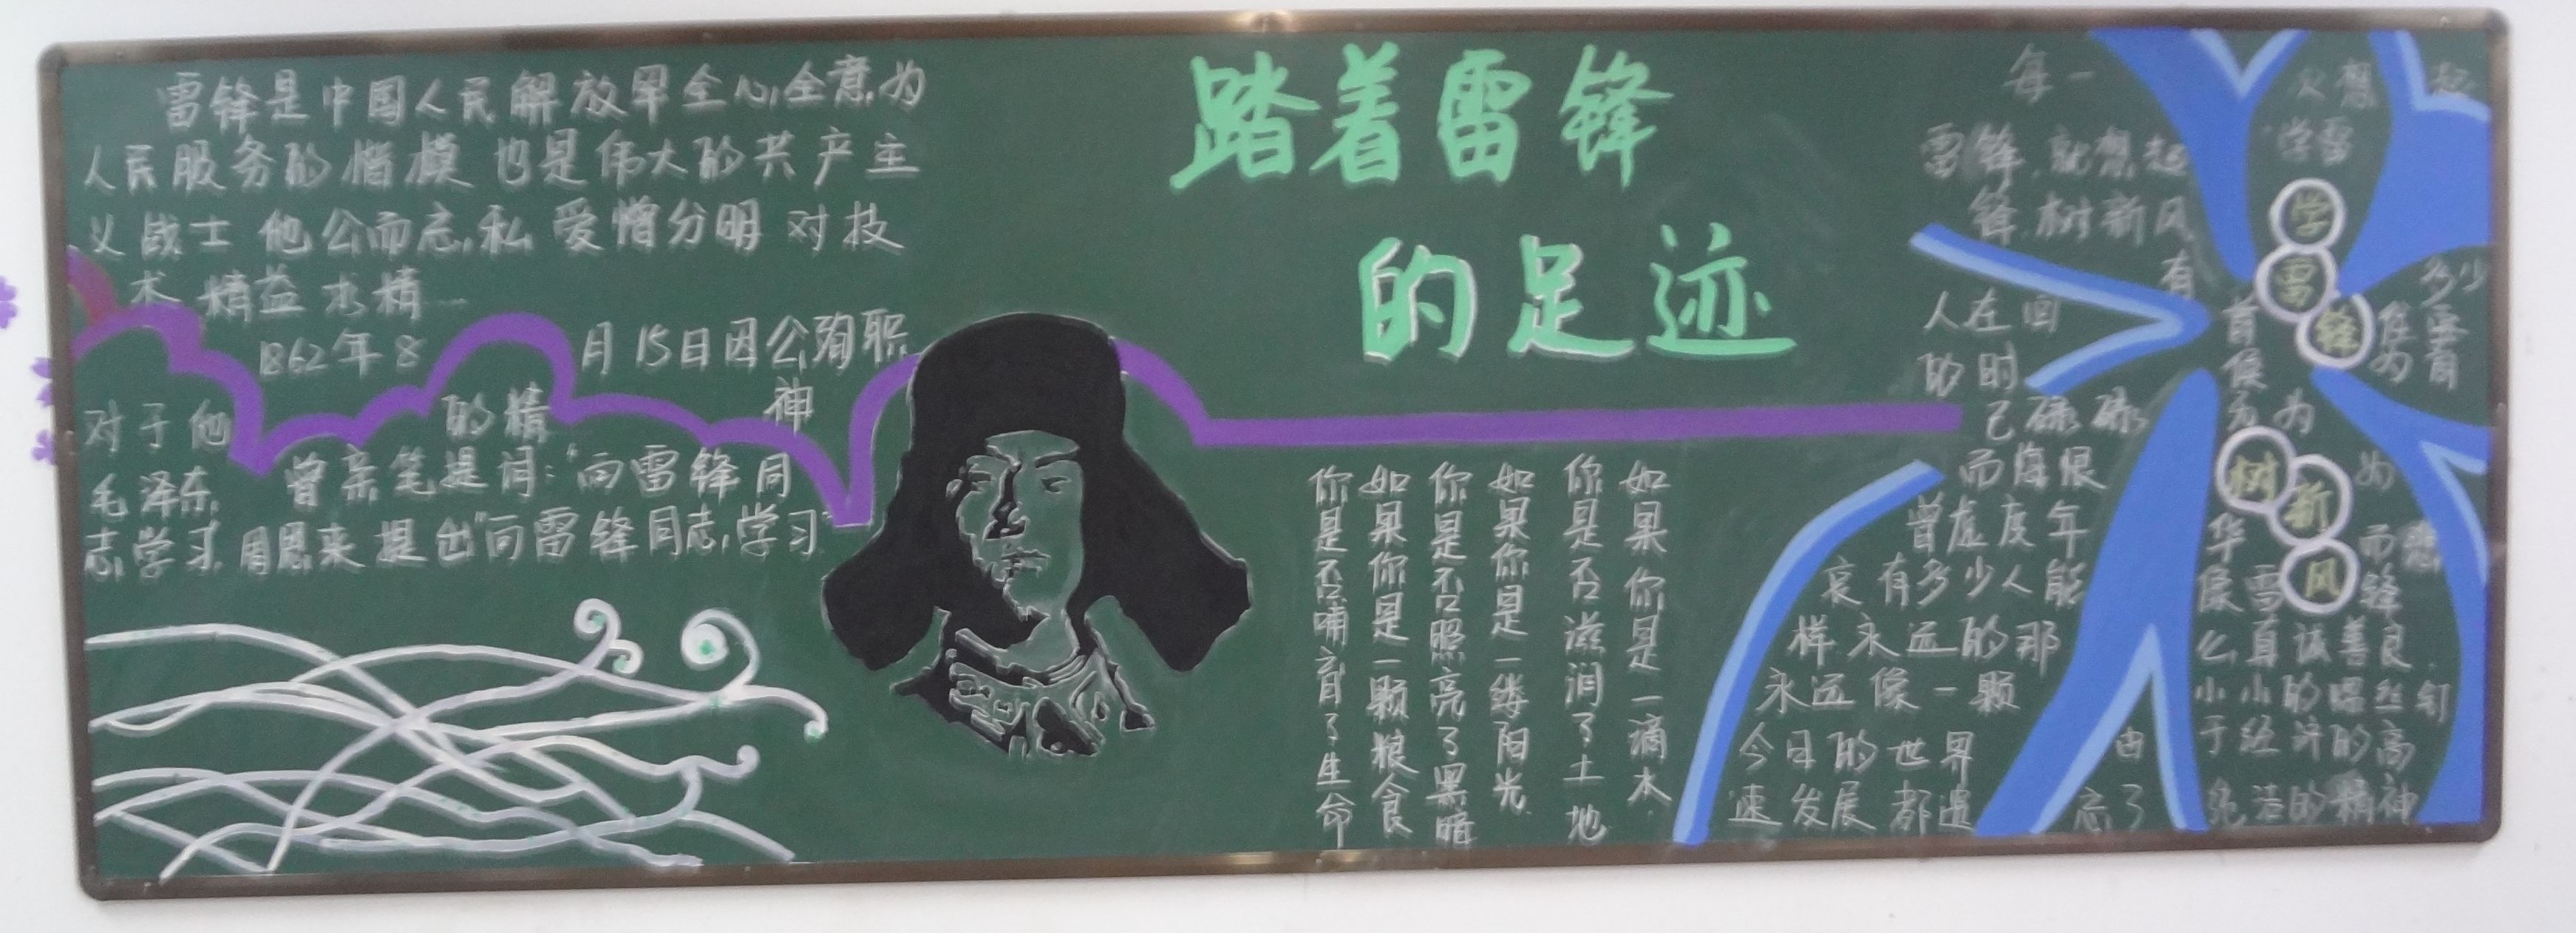 踏着雷锋
的足迹
雷锋是中国人民解放军全心全意为
人民服务的楷模 也是伟大的共产主
义战士 他公而忘私 爱憎分明 对技
术 精益求精
1862年8 月15日因公殉职
对于他 的精 神
毛泽东 曾亲笔提词:“向雷锋同
志学习 周恩来提出“向雷锋同志学习”
如果你是一滴水
你是否滋润了土地
如果你是一缕阳光
你是否照亮了黑暗
如果你是一颗粮食
你是否哺育了生命
每一 次想起
雷锋 就想起 学雷
锋 树新风
有 多少
人在回首 雷
的时候
己碌碌 无为
而悔恨 为
曾虚度年华 而悲
哀 有多少人能像雷锋
样永远的那么真诚善良
永远像一颗小小的螺丝钉
今日的世界由于经济的高
速发展都遗忘了 的精神
学雷锋
树新风